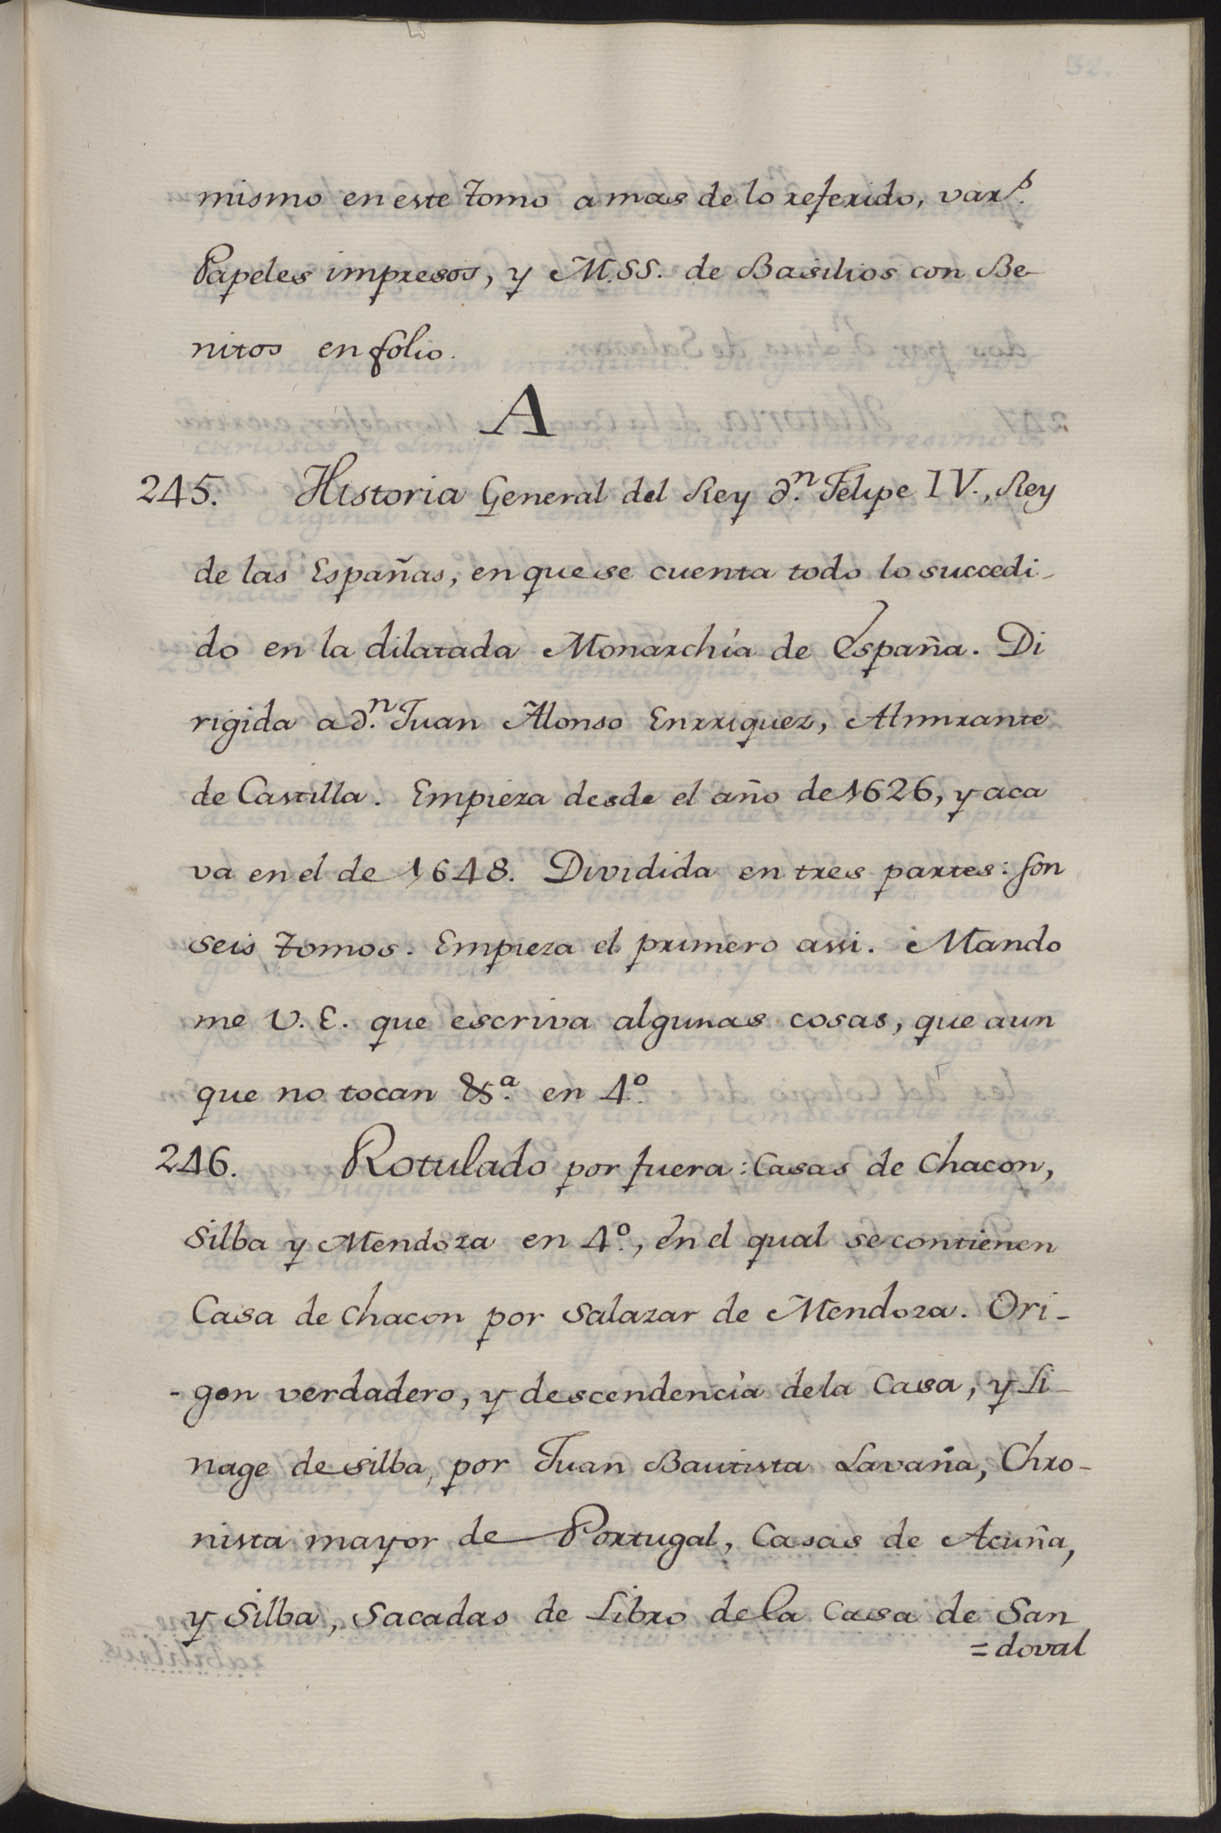 mismo en este tomo a mas de lo referido, var.ˢ
Papeles impresos, y M.SS. de Basilios con Be-
nitos en folio.
A
245. Historia General del Rey d.ⁿ Felipe IV., Rey
de las Españas, en que se cuenta todo lo succedi-
do en la dilatada Monarchía de España. Di
rigida a d.ⁿ Juan Alonso Enrriquez, Almirante
de Castilla. Empieza desde el año de 1626, y aca
va en el de 1648. Dividida en tres partes: son
seis tomos. Empieza el primero assi. Mando
me V. E. que escriva algunas cosas, que aun
que no tocan &.ª en 4.º
246. Rotulado por fuera: Casas de Chacon,
Silba y Mendoza en 4.º, en el qual se contienen
Casa de Chacon por Salazar de Mendoza. Ori-
-gen verdadero, y descendencía dela Casa, y Li-
nage de Silba, por Juan Bautista Lavaña, Chro-
nista mayor de Portugal, Casas de Acuña,
y Silba, Sacadas de Libro de la Casa de San
=doval